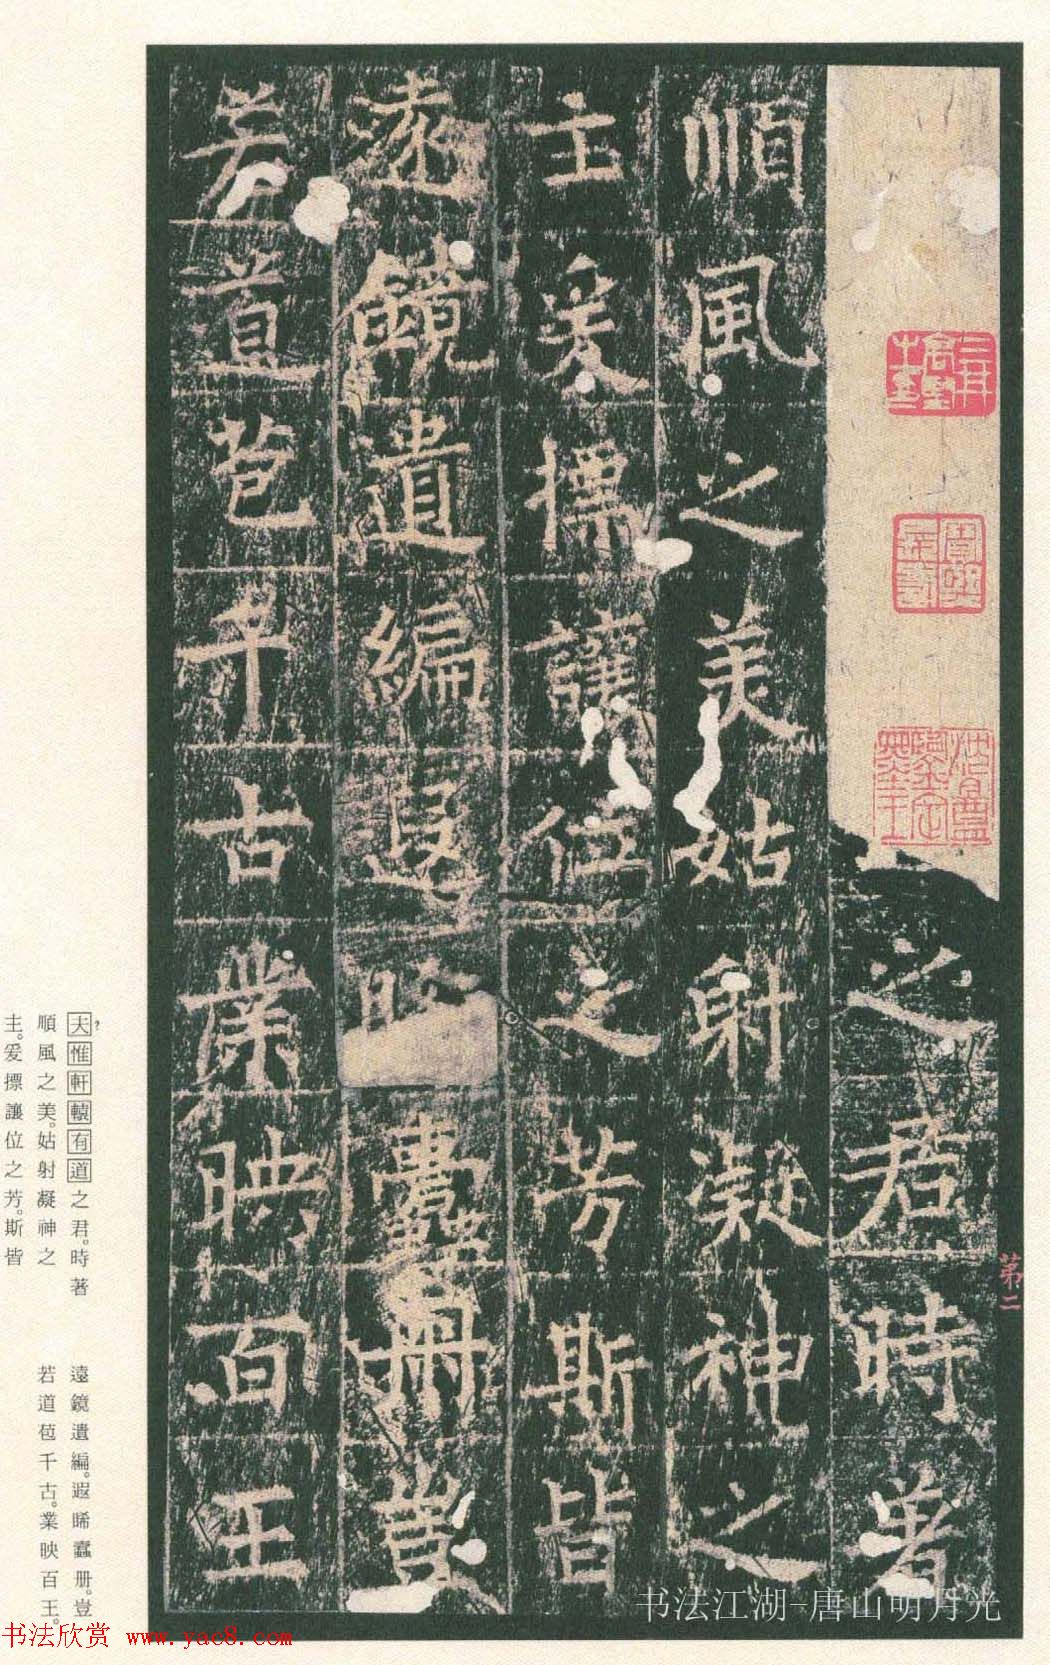 之君時著
順風之美姑射凝神之
主爰摽讓位之芳斯皆
遠鏡遺編遐晞蠹册豈
若道苞千古業映百王
第二
天惟軒轅有道之君。時著
順風之美。姑射凝神之
主。爰摽讓位之芳。斯皆
遠鏡遺編。遐晞蠹册。豈
若道苞千古。業映百王。
书法江湖-唐山明月光
书法欣赏 www.yac8.com